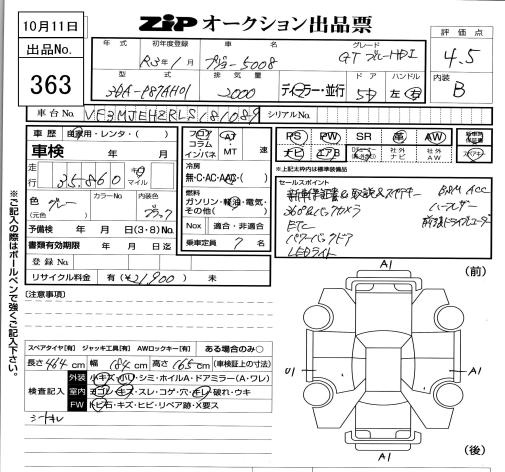 10月11日
出品No.
363
ZiP オークション出品票
評価点
4.5
内装
B
年式 初年度登録 車名 グレード
R3年1月 プジョー5008 GT ブルーHDI
型式 排気量 ドア ハンドル
3DA-P87AH01 2000 ディーラー・並行 5D 左・右
車台No. VF3MJEHZRLS181089 シリアルNo.
車歴 自家用・レンタ・( )
車検 年 月
走行 35860 キロ マイル
色 グレー カラーNo. 内装色 ブラック
(元色)
予備検 年 月 日(3・8)No.
書類有効期限 年 月 日迄
登録No.
リサイクル料金 有(¥21,900) 未
フロア コラム インパネ AT MT 速
冷房
無・C・AC・AAC・( )
燃料
ガソリン・軽油・電気・その他( )
Nox 適合・非適合
乗車定員 7 名
PS PW SR 革 AW
ナビ エアB 社外ナビ 社外AW
※上記太枠内は標準装備品
セールスポイント
360°&バックカメラ
ETC
パワーバックドア
LEDライト
ACC
ハーフレザー
前後ドライブレコーダー
[注意事項]
スペアタイヤ[有] ジャッキ工具[有] AWロックキー[有] ある場合のみ○
長さ464cm 幅184cm 高さ165cm (車検証上の寸法)
検査記入
外装 小キズ・小凹・シミ・ホイルA・ドアミラー(A・ワレ)
室内 ヨゴレ・キズ・スレ・コゲ・穴・キレ・破れ・ウキ
FW トビ石・キズ・ヒビ・リペア跡・X要ス
シートキレ
(前)
A1
U1
A1
A1
(後)
※ご記入の際はボールペンで強くご記入下さい。